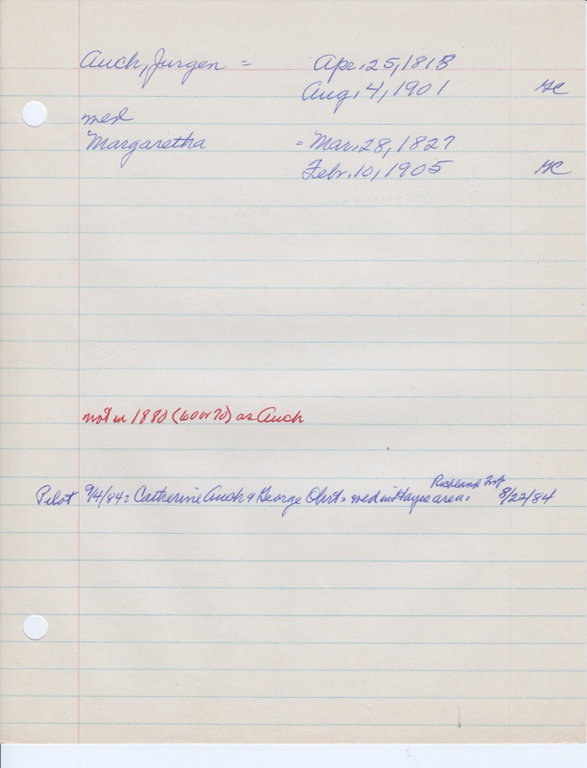 Auch, Jurgen = Apr. 25, 1818
Aug. 4, 1901 HC
med
Margaretha = Mar. 28, 1827
Febr. 10, 1905 HC
not in 1880 (60 or 70) as Auch
Richland Twp
Pilot 9/4/84: Catherine Auch & George Ohrt = wed in Hayes area = 8/22/84